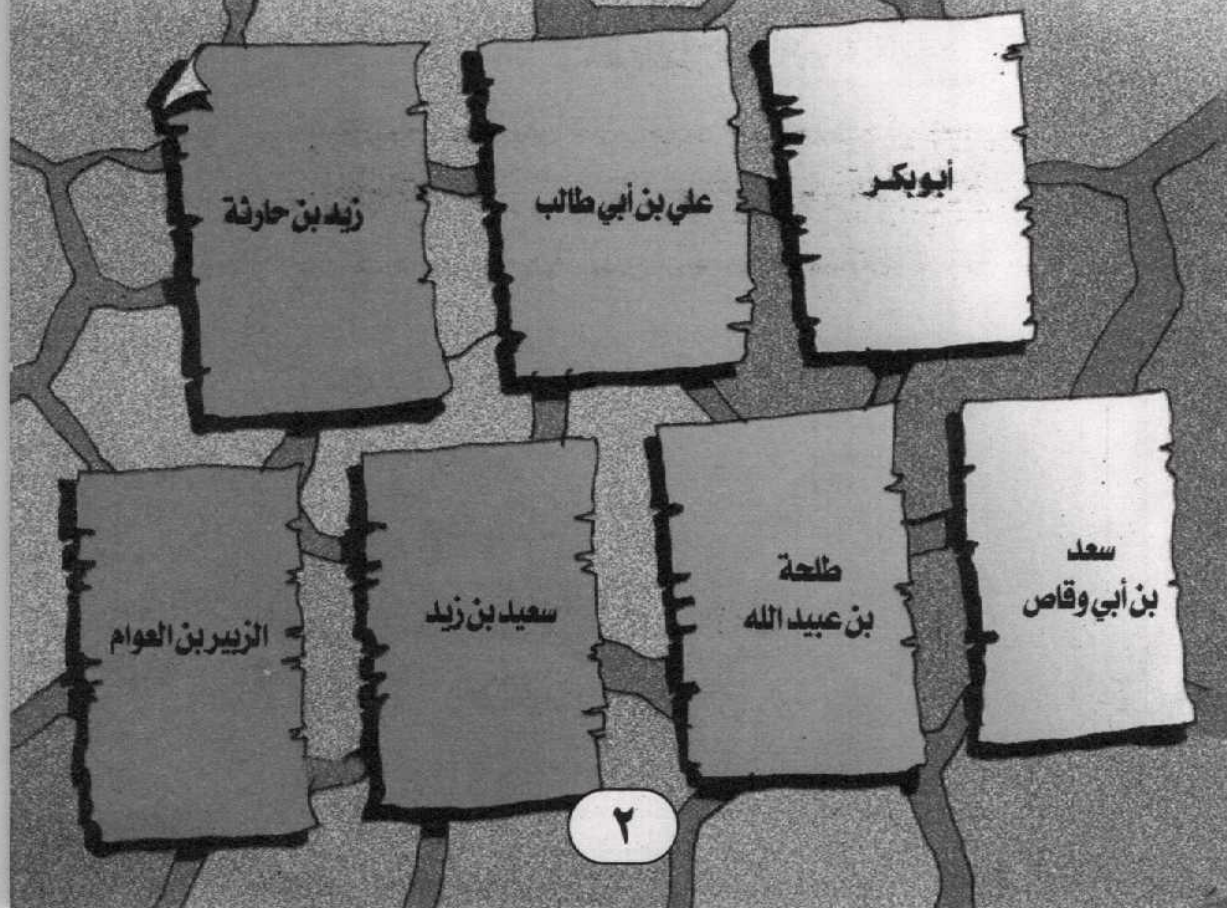 أبو بكر
علي بن أبي طالب
زيد بن حارثة
سعد
بن أبي وقاص
طلحة
بن عبيد الله
سعيد بن زيد
الزبير بن العوام
٢